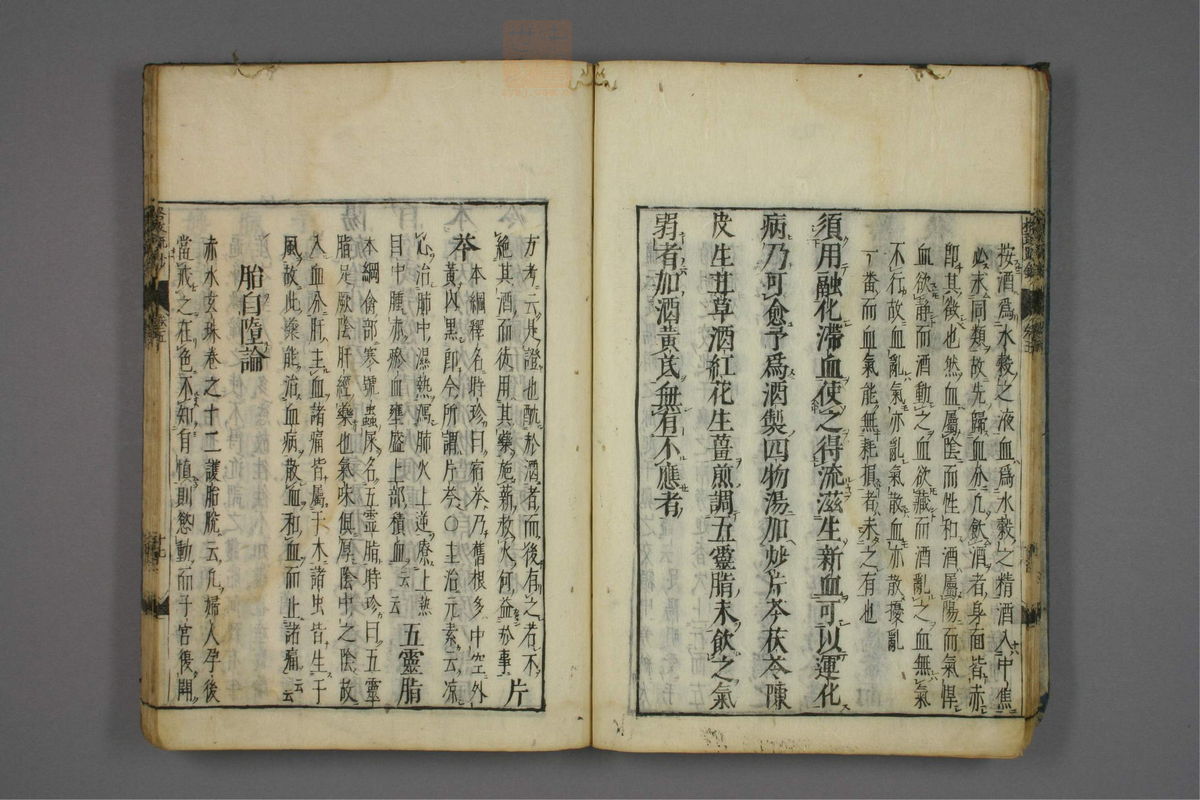 按酒爲水穀之液血爲水穀之精酒入中焦
必求同類故先歸血分凡飲酒者身面皆赤
卽其徵也然血屬陰而性和酒屬陽而氣悍
血欲靜而酒動之血欲藏而酒亂之血無氣
不行故血亂氣亦亂氣散血亦散擾亂
一番而血氣能無耗損者未之有也
須用融化滯血使之得流滋生新血可以運化
病乃可愈予爲酒製四物湯加炒片芩茯苓陳
皮生甘草酒紅花生薑煎調五靈脂末飲之氣
弱者加酒黃芪無有不應者
方考云是證也酗於酒者而後有之若不
絕其酒而徒用其藥施薪救火何益於事 片
芩 本綱釋名時珍曰宿芩乃舊根多中空外
黃內黑卽今所謂片芩○主治元素云凉
心治肺中濕熱瀉肺火上逆療上熱
目中腫赤瘀血壅盛上部積血云云 五靈脂
本綱禽部寒號蟲屎名五靈脂時珍曰五靈
脂足厥陰肝經藥也氣味俱厚陰中之陰故
入血分肝主血諸痛皆屬于木諸虫皆生于
風故此藥能治血病散血和血而止諸痛云云
胎自墮論
赤水玄珠卷之十二護胎脫云凡婦人孕後
當戒之在色不知有慎則慾動而子宮復開